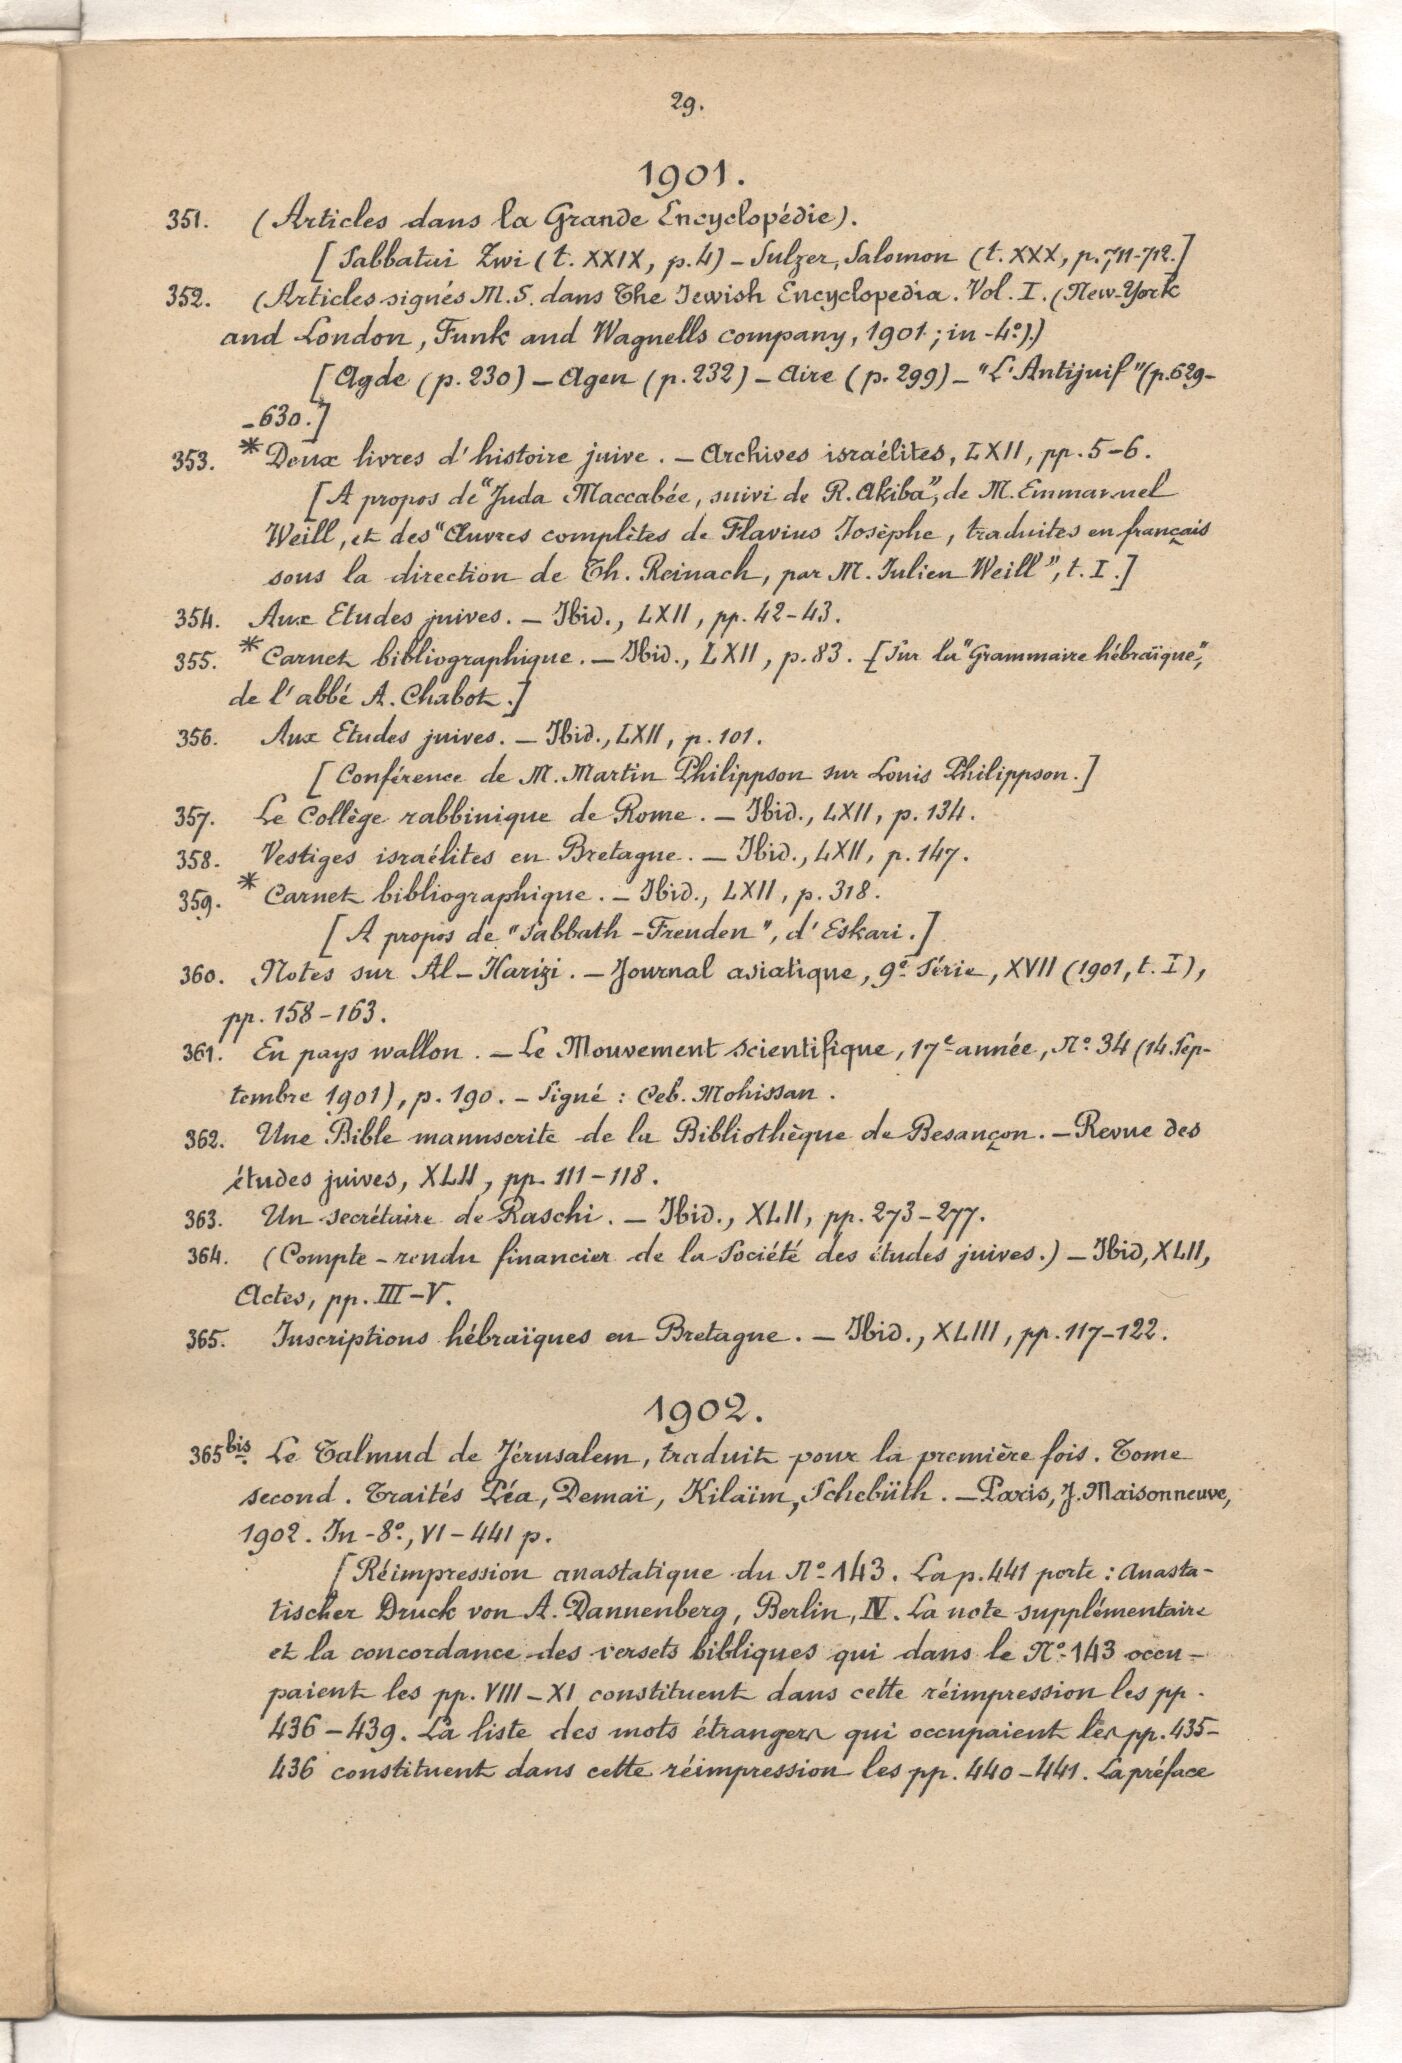 29.
1901.
351. (Articles dans la Grande Encyclopédie).
[Sabbatai Zwi (t. XXIX, p. 4) – Sulzer, Salomon (t. XXX, p. 711-712.]
352. (Articles signés M.S. dans The Jewish Encyclopedia. Vol. I. (New-York
and London, Funk and Wagnells company, 1901; in-4º).)
[Agde (p. 230) – Agen (p. 232) – Aire (p. 299) – "L'Antijuif" (p. 629-
-630.]
353. * Deux livres d'histoire juive. – Archives israélites, LXII, pp. 5-6.
[A propos de "Juda Maccabée, suivi de R. Akiba", de M. Emmanuel
Weill, et des "Œuvres complètes de Flavius Josèphe, traduites en français
sous la direction de Th. Reinach, par M. Julien Weill", t. I.]
354. Aux Etudes juives. – Ibid., LXII, pp. 42-43.
355. * Carnet bibliographique. – Ibid., LXII, p. 83. [Sur la "Grammaire hébraïque",
de l'abbé A. Chabot.]
356. Aux Etudes juives. – Ibid., LXII, p. 101.
[Conférence de M. Martin Philippson sur Louis Philippson.]
357. Le Collège rabbinique de Rome. – Ibid., LXII, p. 134.
358. Vestiges israélites en Bretagne. – Ibid., LXII, p. 147.
359. * Carnet bibliographique. – Ibid., LXII, p. 318.
[A propos de "Sabbath-Freuden", d'Eskari.]
360. Notes sur Al-Harizi. – Journal asiatique, 9e Série, XVII (1901, t. I),
pp. 158-163.
361. En pays wallon. – Le Mouvement scientifique, 17e année, Nº 34 (14 Sep-
tembre 1901), p. 190. – Signé : Ceb. Mohissan.
362. Une Bible manuscrite de la Bibliothèque de Besançon. – Revue des
études juives, XLII, pp. 111-118.
363. Un secrétaire de Raschi. – Ibid., XLII, pp. 273-277.
364. (Compte-rendu financier de la Société des études juives.) – Ibid, XLII,
Actes, pp. III-V.
365. Inscriptions hébraïques en Bretagne. – Ibid., XLIII, pp. 117-122.
1902.
365bis. Le Talmud de Jérusalem, traduit pour la première fois. Tome
second. Traités Péa, Demaï, Kilaïm, Schebiith. – Paris, J. Maisonneuve,
1902. In-8º, VI-441 p.
[Réimpression anastatique du Nº 143. La p. 441 porte : Anasta-
tischer Druck von A. Dannenberg, Berlin, N. La note supplémentaire
et la concordance des versets bibliques qui dans le Nº 143 occu-
paient les pp. VIII-XI constituent dans cette réimpression les pp.
436-439. La liste des mots étrangers qui occupaient les pp. 435-
436 constituent dans cette réimpression les pp. 440-441. La préface